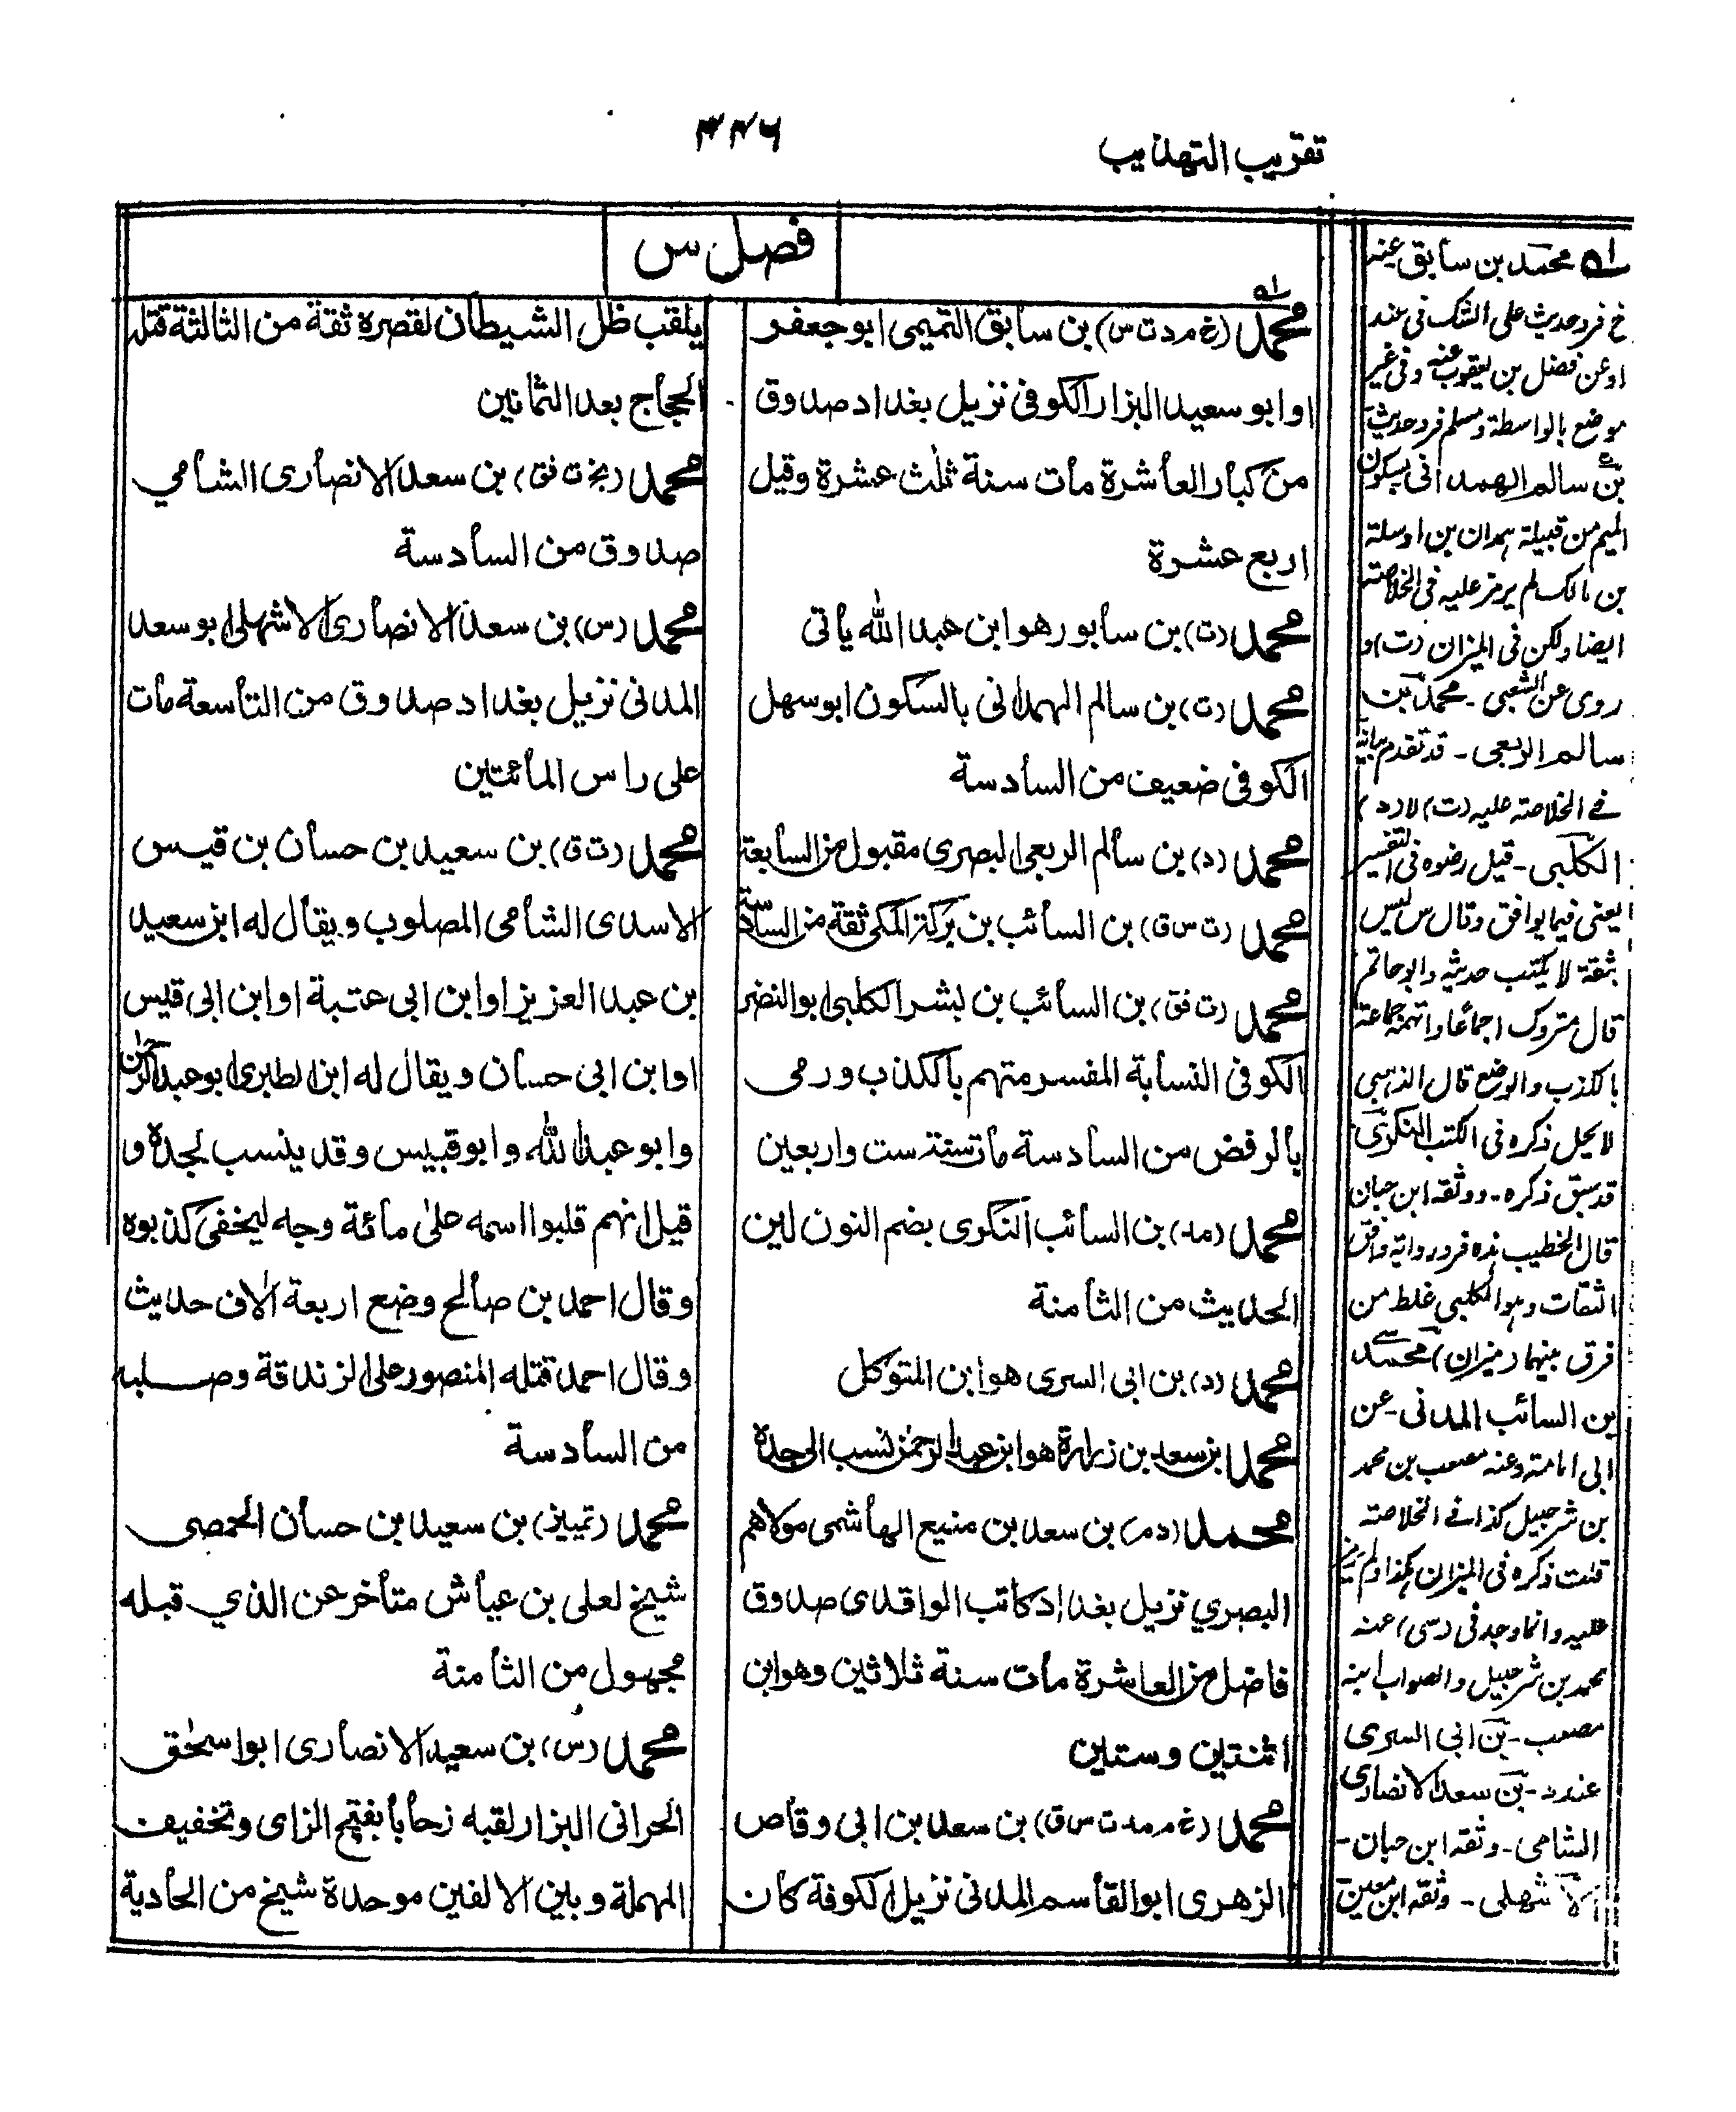 تقريب التهذيب
۳۲۶
فصل س
محمد (خ م د ت س) بن سابق التميمى ابو جعفر
او ابو سعيد البزار الكوفى نزيل بغداد صدوق
من كبار العاشرة مات سنة ثلث عشرة وقيل
اربع عشرة
محمد (ت) بن سابور هو ابن عبد الله يأتى
محمد (ت) بن سالم الهمدانى بالسكون ابو سهل
الكوفى ضعيف من السادسة
محمد (د) بن سالم الربعى البصرى مقبول من السابعة
محمد (ت س ق) بن السائب بن بركة المكى ثقة من السادسة
محمد (ت فق) بن السائب بن بشر الكلبى ابو النضر
الكوفى النسابة المفسر متهم بالكذب ورمى
بالرفض من السادسة مات سنة ست واربعين
محمد (مد) بن السائب النكرى بضم النون لين
الحديث من الثامنة
محمد (د) بن ابى السرى هو ابن المتوكل
محمد بن سعد بن زرارة هو ابن عبد الرحمن نسب الى جده
محمد (د) بن سعد بن منيع الهاشمى مولاهم
البصري نزيل بغداد كاتب الواقدى صدوق
فاضل من العاشرة مات سنة ثلاثين وهو ابن
اثنتين وستين
محمد (خ م مد ت س ق) بن سعد بن ابى وقاص
الزهرى ابو القاسم المدنى نزيل الكوفة كان
يلقب ظل الشيطان لقصره ثقة من الثالثة قتله
الحجاج بعد الثمانين
محمد (بخ ت فق) بن سعد الانصارى الشامي
صدوق من السادسة
محمد (س) بن سعد الانصارى الاشهلى ابو سعد
المدنى نزيل بغداد صدوق من التاسعة مات
على راس المائتين
محمد (ت ق) بن سعيد بن حسان بن قيس
الاسدى الشامى المصلوب ويقال له ابن سعيد
بن عبد العزيز او ابن ابى عتبة او ابن ابى قيس
او ابن ابى حسان ويقال له ابن الطبرى ابو عبد الرحمن
وابو عبد الله وابو قبيس وقد ينسب لجده و
قيل انهم قلبوا اسمه على مائة وجه ليخفى كذبوه
وقال احمد بن صالح وضع اربعة الاف حديث
وقال احمد قتله المنصور على الزندقة وصلبه
من السادسة
محمد (تمييز) بن سعيد بن حسان الحمصى
شيخ لعلى بن عياش متأخر عن الذي قبله
مجهول من الثامنة
محمد (س) بن سعيد الانصارى ابو اسحق
الحرانى البزار لقبه زحابا بفتح الزاى وتخفيف
المهملة وبين الالفين موحدة شيخ من الحادية
محمد بن سابق عنه
خ فرد حديث على الشك فى عنه
او عن فضل بن يعقوب عنه وفى غير
موضع بالواسطة ومسلم فرد حديث
بن سالم الهمدانى بسكون
الميم من قبيلة همدان بن اوسلة
بن مالك لم يرمز عليه فى الخلاصة
ايضا ولكن فى الميزان (ت) و
روى عن الشعبى - محمد بن
سالم الربعى - قد تقدم بيانه
فے الخلاصة عليه (ت) لا (د)
الكلبى - قيل رضوه فى التفسير
يعنى فيما يوافق وقال س ليس
بثقة لا يكتب حديثه وابو حاتم
قال متروك اجماعا واتهمه جماعة
بالكذب والوضع قال الذهبى
لا يحل ذكره فى الكتب النكرى
قد سبق ذكره - ووثقه ابن حبان
قال الخطيب
الثقات وهو الكلبى غلط من
فرق بينهما (ميزان) محمد
بن السائب المدنى - عن
ابى امامة وعنه مصعب بن محمد
بن شرحبيل كذا فے الخلاصة
قلت ذكره فى الميزان هكذا ولم يرمز
عليه وانما وجد فى (س) عنه
محمد بن شرحبيل والصواب ابنه
مصعب - بن ابى السرى
عند د - بن سعد الانصارى
الشامى - وثقه ابن حبان -
الاشهلى - وثقه ابن معين